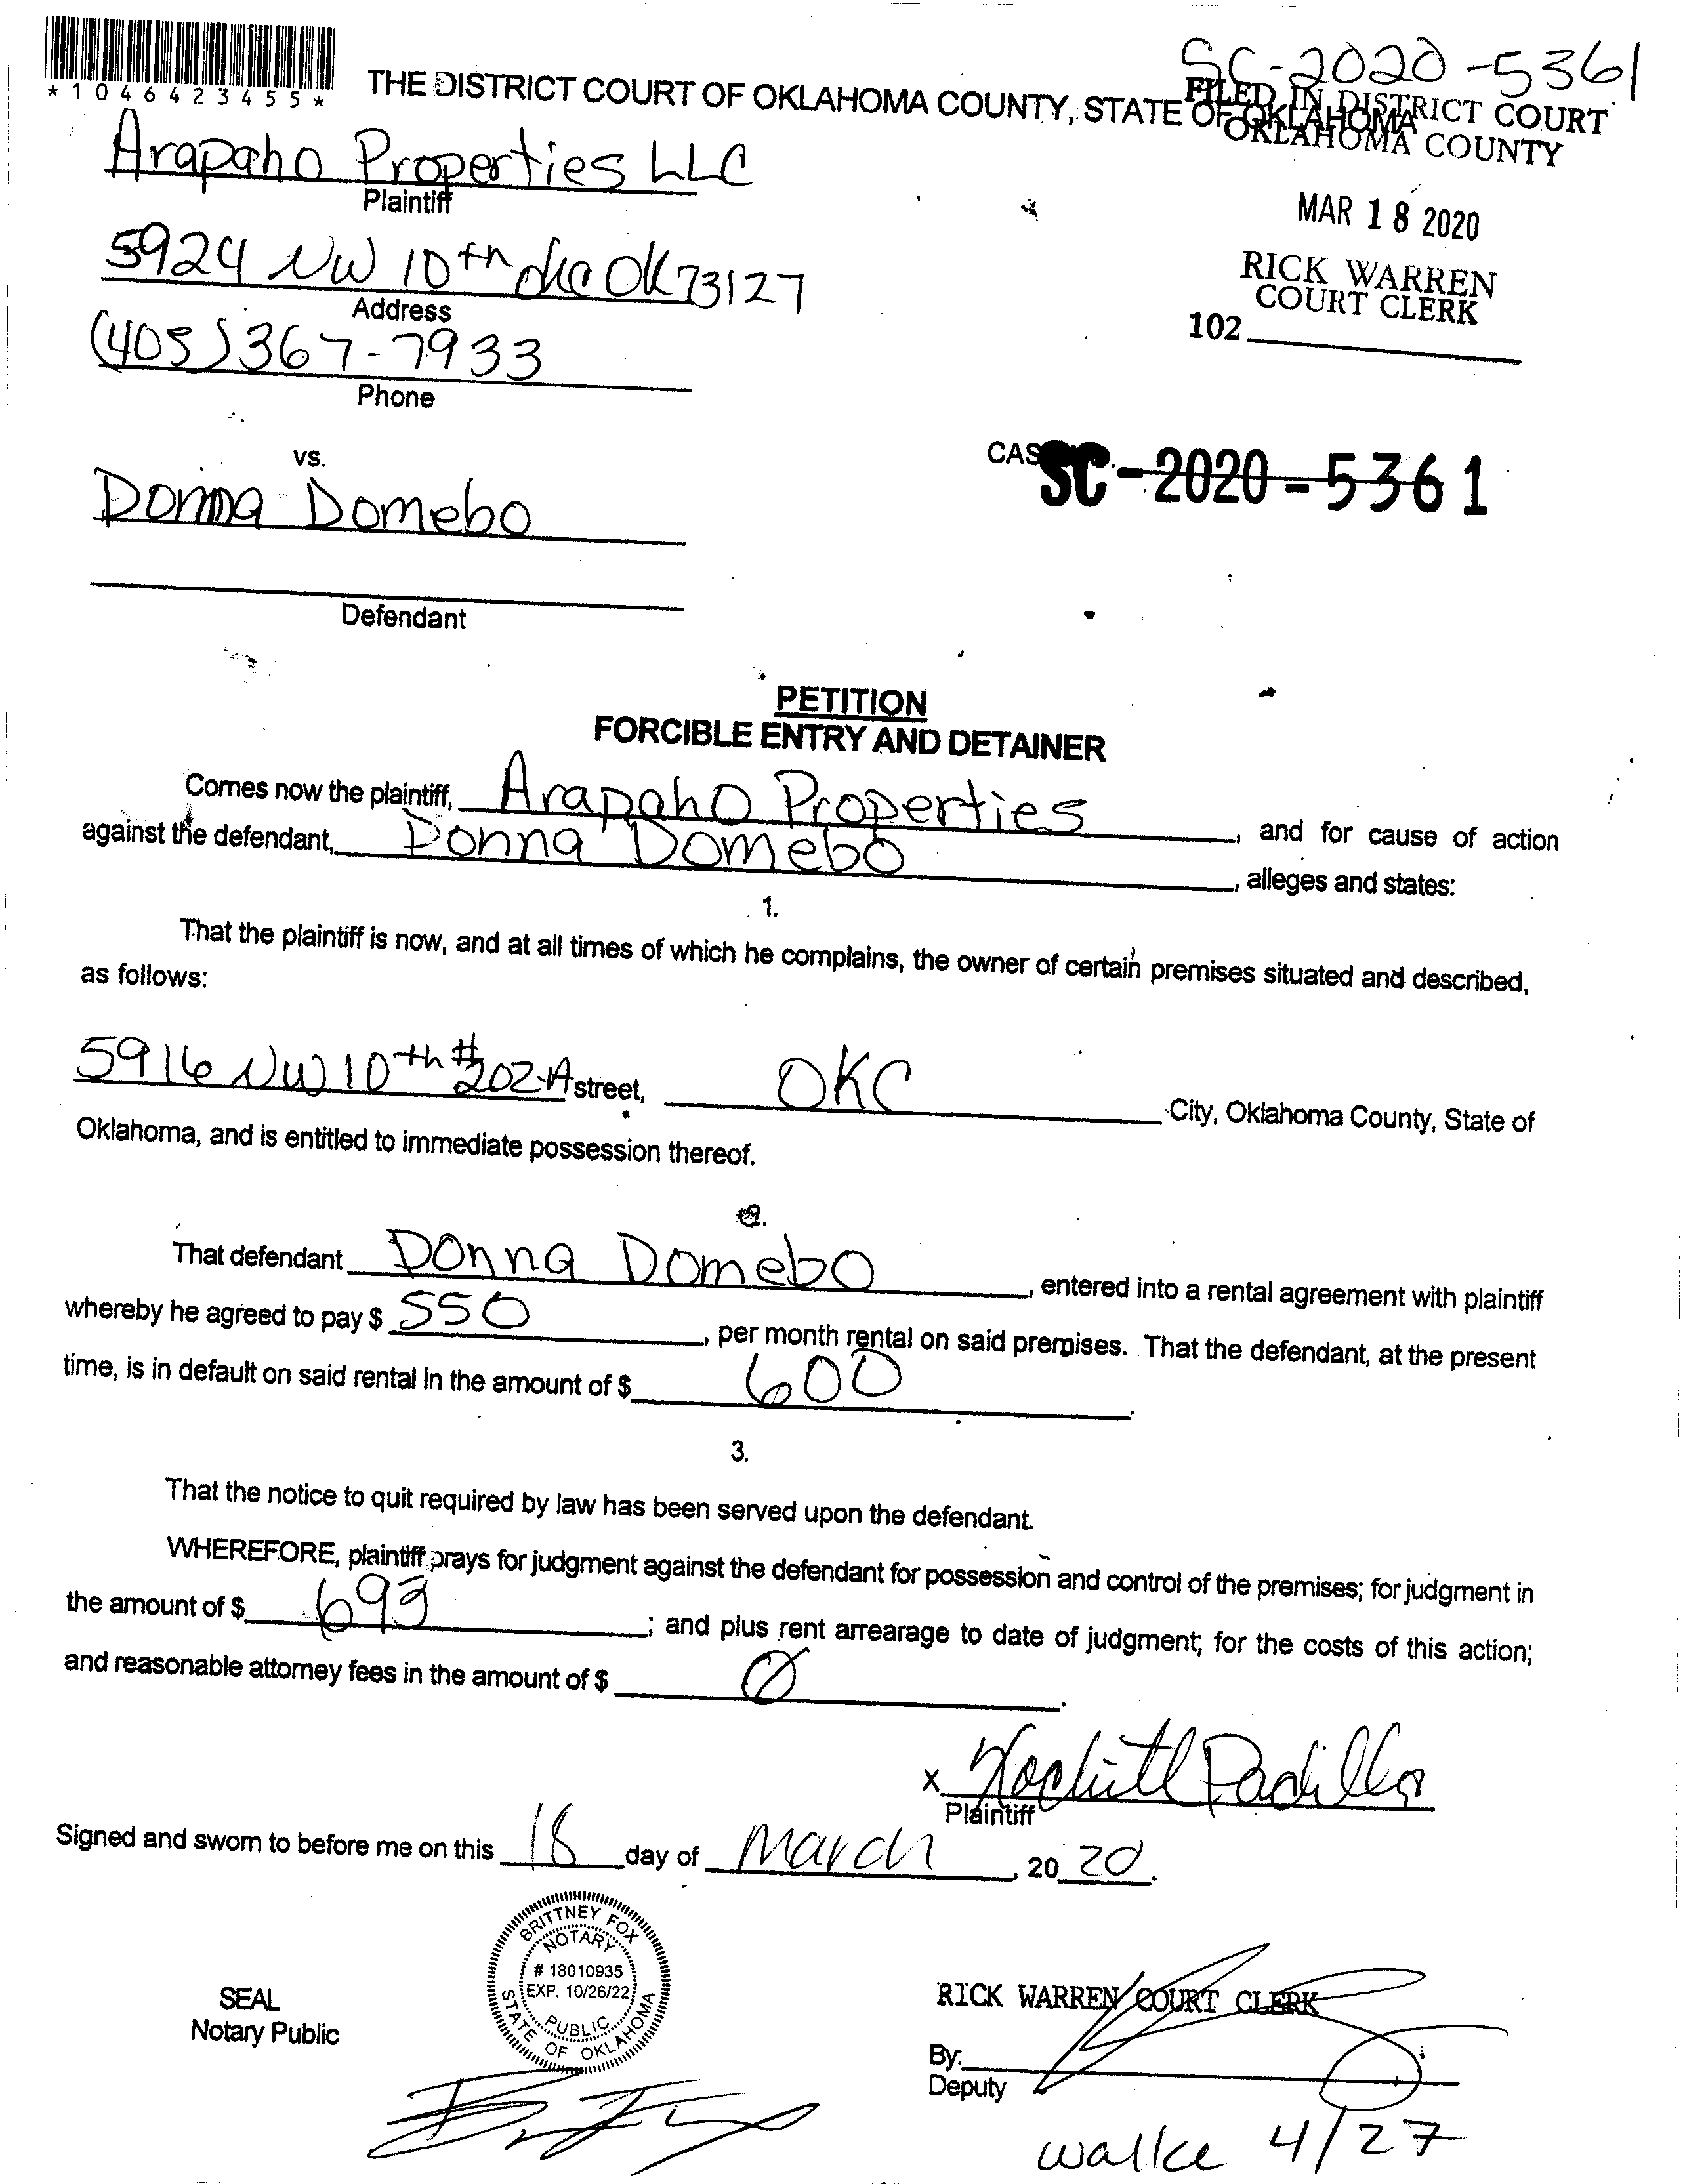 SC-2020-5361
*1046423455*
THE DISTRICT COURT OF OKLAHOMA COUNTY, STATE OF OKLAHOMA
FILED IN DISTRICT COURT
OKLAHOMA COUNTY
Arapaho Properties LLC
Plaintiff
MAR 18 2020
5924 NW 10th OKC OK 73127
Address
RICK WARREN
COURT CLERK
102
(405) 367-7933
Phone
vs.
CAS SC-2020-5361
Donna Domebo
Defendant
PETITION
FORCIBLE ENTRY AND DETAINER
Comes now the plaintiff, Arapaho Properties
against the defendant, Donna Domebo, and for cause of action
, alleges and states:
1.
That the plaintiff is now, and at all times of which he complains, the owner of certain premises situated and described,
as follows:
5916 NW 10th #202-A street, OKC City, Oklahoma County, State of
Oklahoma, and is entitled to immediate possession thereof.
2.
That defendant Donna Domebo, entered into a rental agreement with plaintiff
whereby he agreed to pay $ 550, per month rental on said premises. That the defendant, at the present
time, is in default on said rental in the amount of $ 600.
3.
That the notice to quit required by law has been served upon the defendant.
WHEREFORE, plaintiff prays for judgment against the defendant for possession and control of the premises; for judgment in
the amount of $ 693; and plus rent arrearage to date of judgment; for the costs of this action;
and reasonable attorney fees in the amount of $ 0.
x Xochitl Padilla
Plaintiff
Signed and sworn to before me on this 18 day of March, 20 20.
BRITTNEY FOX
NOTARY
# 18010935
EXP. 10/26/22
PUBLIC
STATE OF OKLAHOMA
SEAL
Notary Public
RICK WARREN COURT CLERK
By:
Deputy
walke 4/27